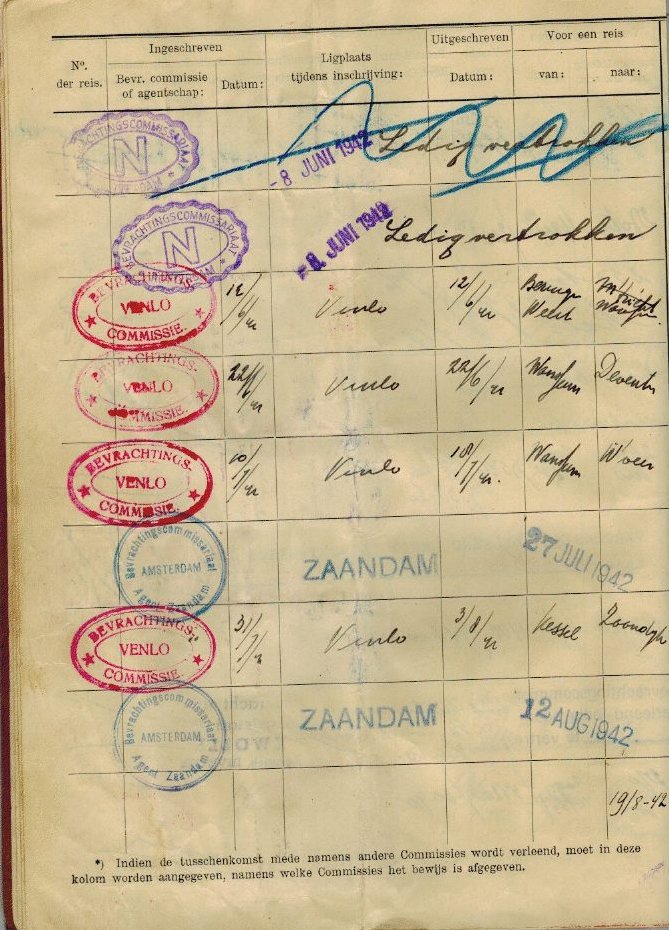 Nº. der reis.
Ingeschreven
Bevr. commissie of agentschap:
Datum:
Ligplaats tijdens inschrijving:
Uitgeschreven
Datum:
Voor een reis
van:
naar:
BEVRACHTINGSCOMMISSARIAAT
N
-8 JUNI 1942
Ledig vertrokken
BEVRACHTINGSCOMMISSARIAAT
N
-8 JUNI 1942
Ledig vertrokken
BEVRACHTINGS- VENLO COMMISSIE.
12/6/42
Venlo
12/6/42
Weert
BEVRACHTINGS- VENLO COMMISSIE.
22/6/42
Venlo
22/6/42
Wanssum
Deventer
BEVRACHTINGS- VENLO COMMISSIE.
10/7/42
Venlo
10/7/42.
Wanssum
Bevrachtingscommissariaat AMSTERDAM Agent Zaandam
ZAANDAM
27 JULI 1942
BEVRACHTINGS- VENLO COMMISSIE.
31/7/42
Venlo
3/8/42
Kessel
Bevrachtingscommissariaat AMSTERDAM Agent Zaandam
ZAANDAM
12 AUG 1942
19/8-42
*) Indien de tusschenkomst mede namens andere Commissies wordt verleend, moet in deze
kolom worden aangegeven, namens welke Commissies het bewijs is afgegeven.